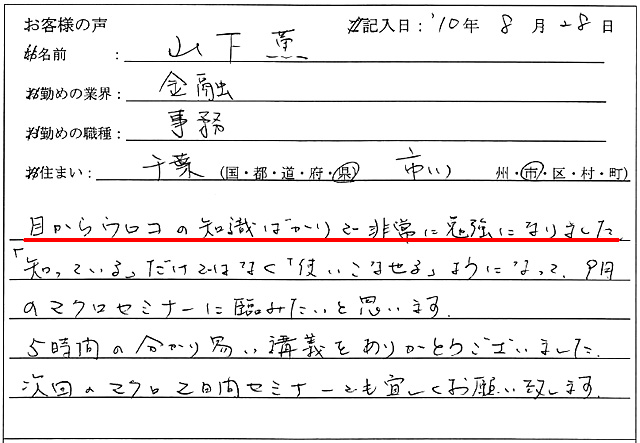 お客様の声 記入日：'10年 8月 28日
お名前 ： 山下 薫
お勤めの業界： 金融
お勤めの職種： 事務
お住まい： 千葉 (国・都・道・府・県) 市川 州・市・区・村・町)
目からウロコの知識ばかりで非常に勉強になりました
「知っている」だけではなく「使いこなせる」ようになって、9月
のマクロセミナーに臨みたいと思います。
5時間の分かり易い講義をありがとうございました。
次回のマクロ2日間セミナーでも宜しくお願い致します。